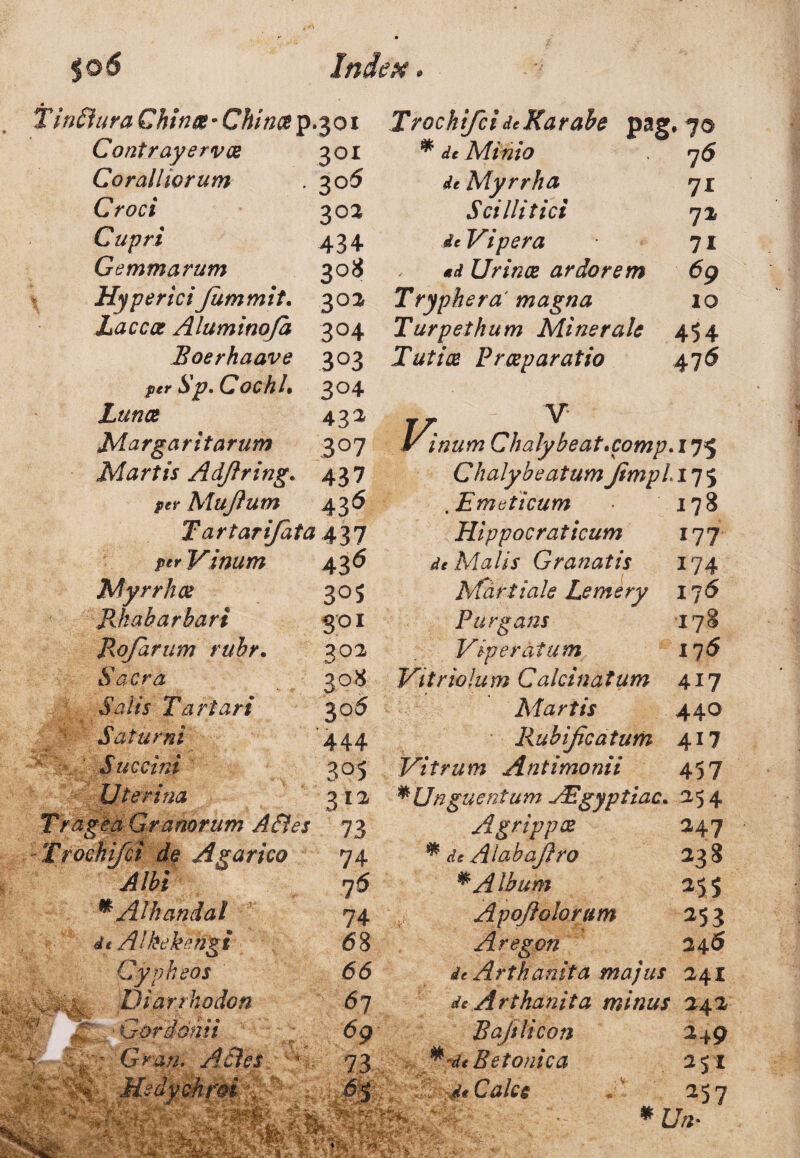 506 Index.
Tinctura Chinæ-Chinæ p.301
Contrayervæ 301
Coralliorum . 306
Croci 302
Cupri 434
Gemmarum 308
Hyperici ſummit. 302
Laccæ Aluminoſa 304
Boerhaave 303
per Sp. Cochl. 304
Lunæ 432
Margaritarum 307
Martis Adſtring. 437
per Muſtum 436
Tartariſata 437
per Vinum 436
Myrrhæ 305
Rhabarbari 301
Roſarum rubr. 302
Sacra 308
Salis Tartari 306
Saturni 444
Succini 305
Uterina 312
Tragea Granorum Actes 73
Trochiſci de Agarico 74
Albi 76
* Alhandal 74
de Alkekengi 68
Cypheos 66
Diarrhodon 67
Gordonii 69
Gran. Actes 73
Hedychroi 65
Trochiſci de Karabe pag. 70
* de Minio . 76
de Myrrha 71
Scillitici 72
de Vipera 71
ad Urinæ ardorem 69
Tryphera magna 10
Turpethum Minerale 454
Tutiæ Præparatio 476
V
Vinum Chalybeat.comp.175
Chalybeatum ſimpl.175
Emeticum 178
Hippocraticum 177
de Malis Granatis 174
Martiale Lemery 176
Purgans 178
Viperatum 176
Vitriolum Calcinatum 417
Martis 440
Rubificatum 417
Vitrum Antimonii 457
* Unguentum Ægyptiac. 254
Agrippæ 247
* de Alabaſtro 238
* Album 255
Apoſtolorum 253
Aregon 246
de Arthanita majus 241
de Arthanita minus 242
Baſilicon 249
* de Betonica 251
de Calce 257
* Un-